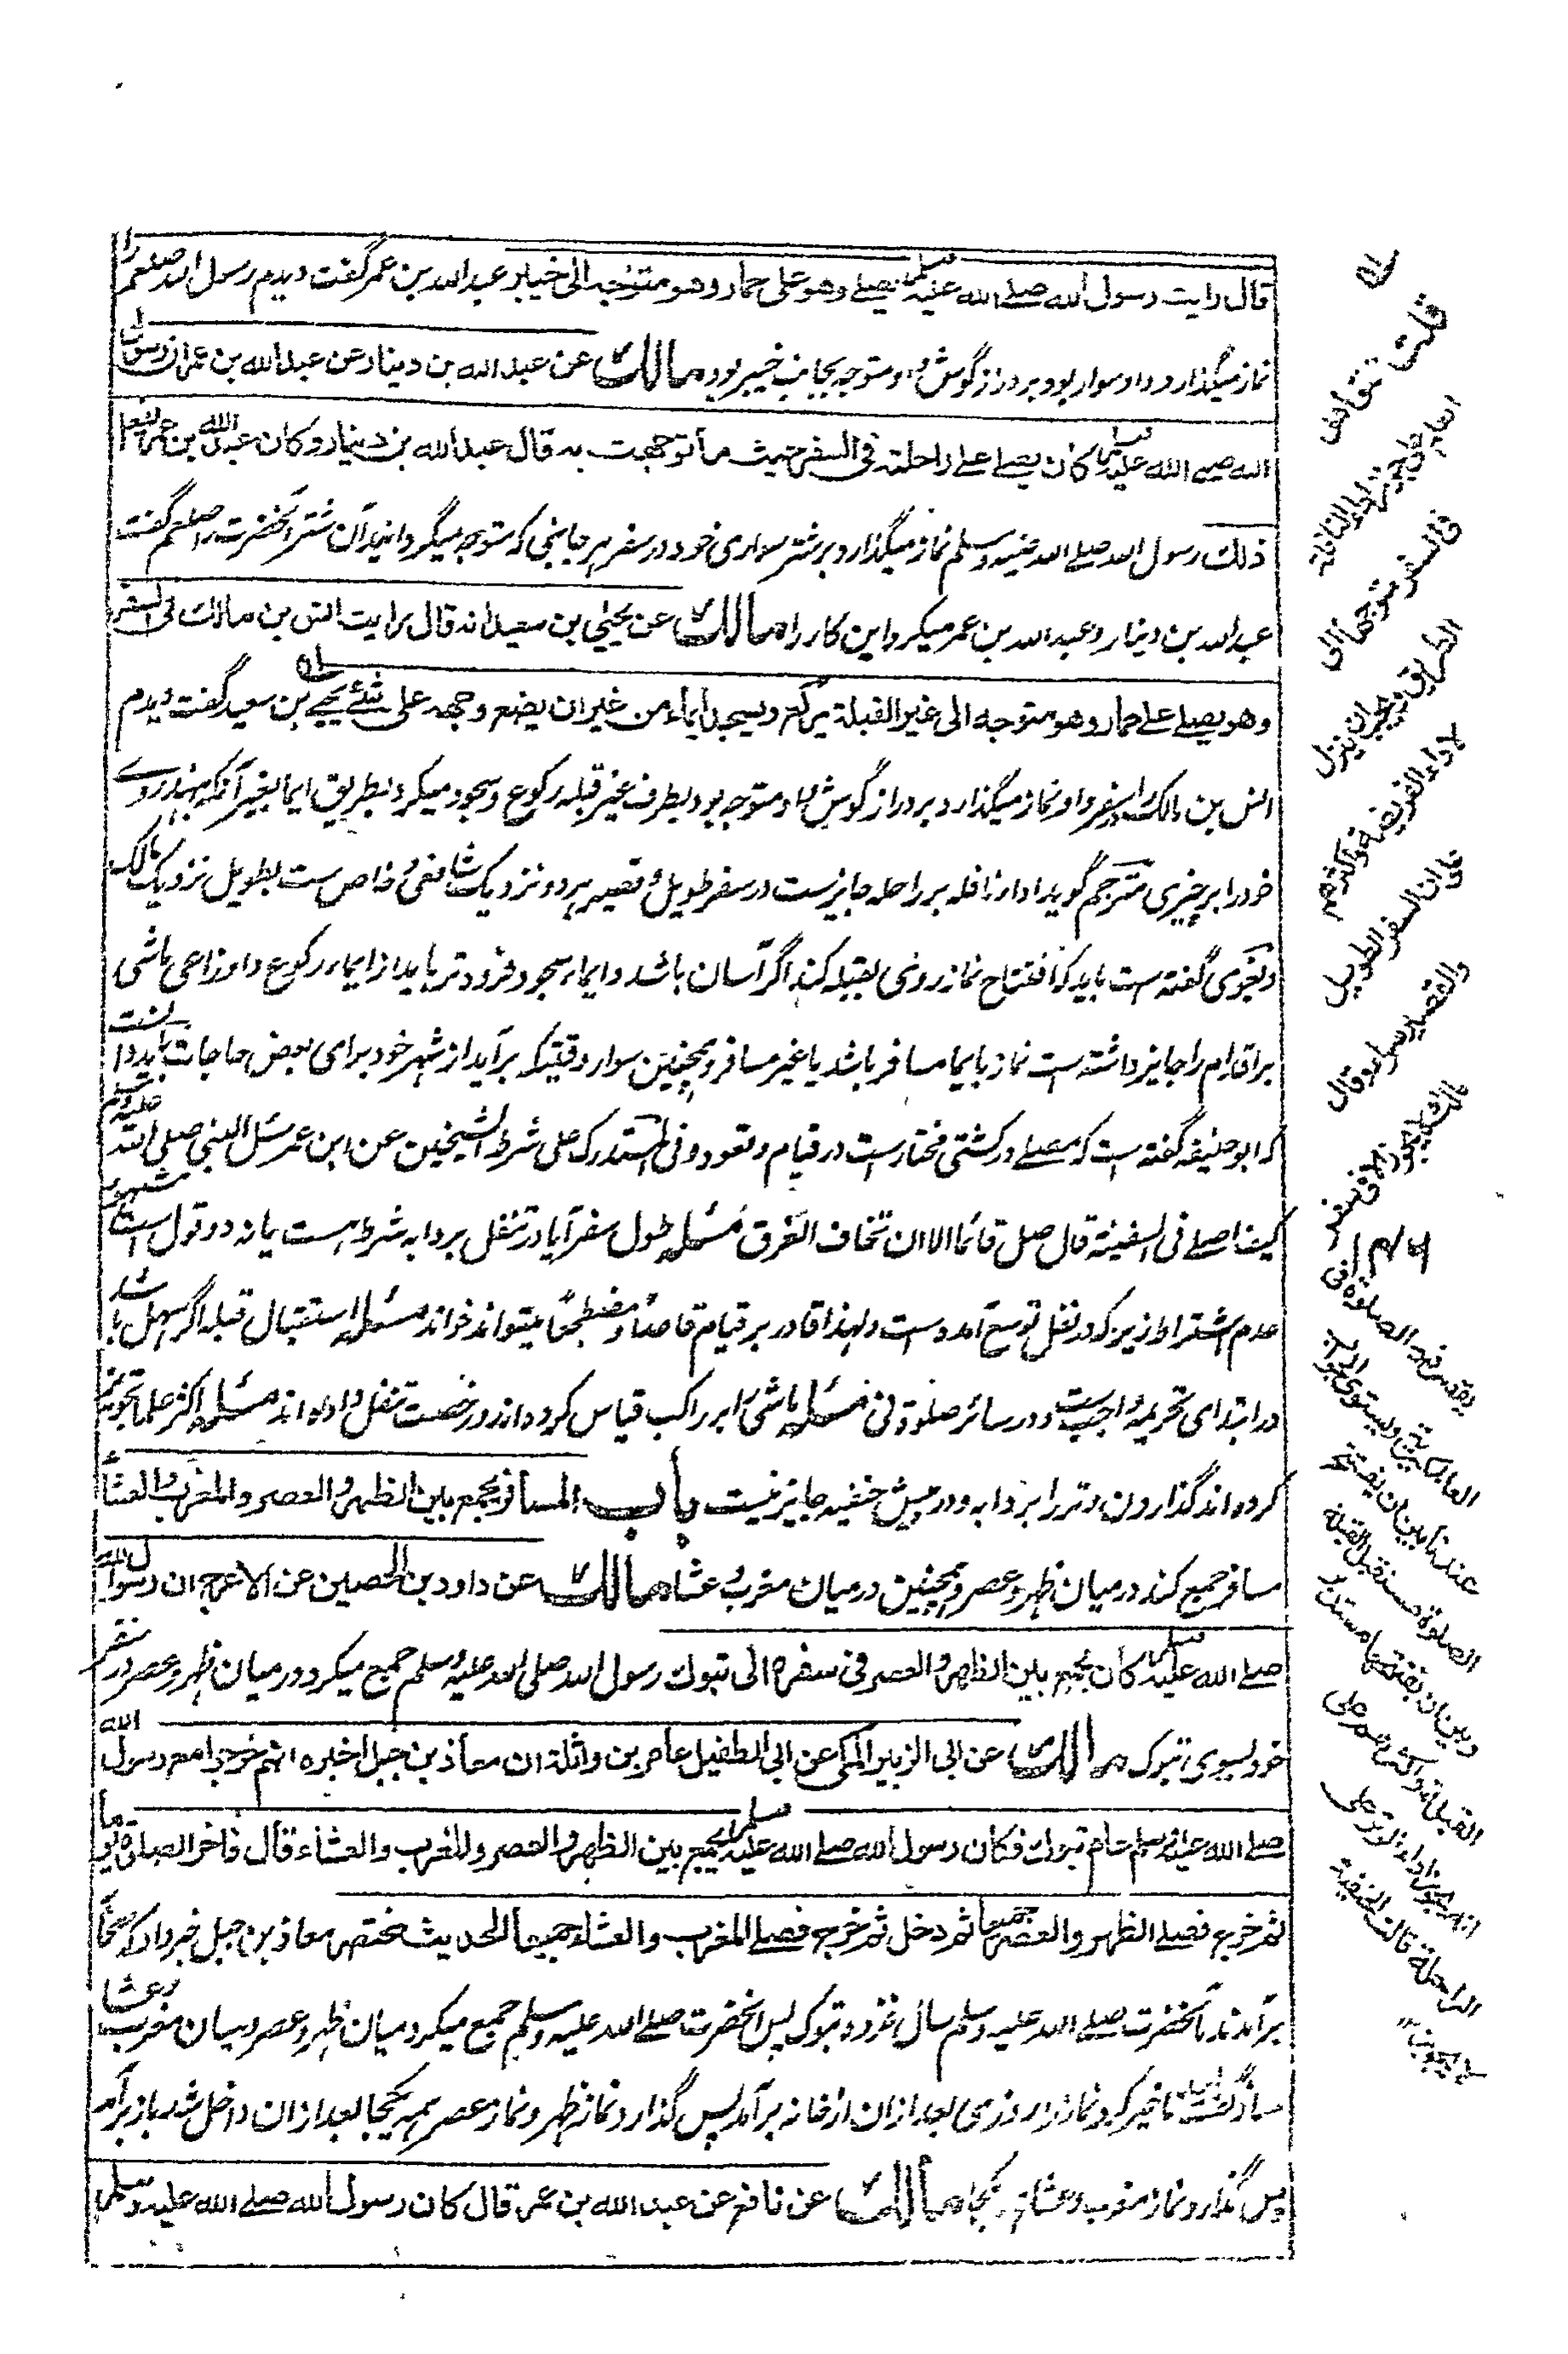 قال رايت رسول الله صلے الله عليه وسلم يصلے وهو على حمار وهو متوجه الى خيبر عبدالله بن عمر گفت ديدم رسول الله صلعم را
نماز ميگذارد و او سوار بود بر درازگوش و او متوجه بجانب خيبر بود مالك عن عبد الله بن دينار عن عبد الله بن عمر ان رسول
الله صلے الله عليه وسلم كان يصلے علے راحلته فى السفر حيث ما توجهت به قال عبد الله بن دينار وكان عبد الله بن عمر يفعل
ذلك رسول الله صلے الله عليه وسلم نماز ميگذارد بر شتر سوارى خود در سفر هر جانبى كه متوجه ميگردانيد آن شتر آنحضرت را صلعم گفت
عبدالله بن دينار و عبدالله بن عمر ميكرد اين كار را مالك عن يحيى بن سعيد انه قال رايت انس بن مالك فى السفر
وهو يصلے علے حمار وهو متوجه الى غير القبلة يركع ويسجد ايماء من غير ان يضع وجهه على شئ يحيے بن سعيد گفت ديدم
انس بن مالك را در سفر و او نماز ميگذارد بر درازگوش و او متوجه بود بطرف غير قبله ركوع و سجود ميكرد بطريق ايما بغير آنكه بنهد روے
خود را بر چيزى مترجم گويد اداء نافله بر راحله جايزست در سفر طويل و قصير هر دو و نزديك شافعى خاص ست بطويل نزديك مالك
و بغوى گفته ست بايد كه افتتاح نماز روى بقبله كند اگر آسان باشد و ايماء سجود فرودتر بايد از ايماء ركوع و اوزاعى ماشى
بر اقدام را جايز داشته ست نماز بايما مسافر باشد يا غير مسافر و همچنين سوار وقتيكه برآيد از شهر خود براى بعض حاجات بايد دانست
كه ابو حنيفه گفته ست كه مصلے در كشتى مختارست در قيام و قعود و فى المستدرك على شرط الشيخين عن ابن عمر سئل النبى صلى الله عليه وسلم
كيف اصلے فى السفينة قال صل قائما الا ان تخاف الغرق مسئله طول سفر آيا در تنفل بر دابه شرط است يا نه دو قول است مشهور
عدم اشتراط زيرا كه در نفل توسع آمده ست ولهذا قادر بر قيام قاعدًا و مضطجعًا ميتواند خواند مسئله استقبال قبله اگر سهل باشد
در ابتداى تحريمه واجب ست و در سائر صلوة نى مسئله ماشى را بر راكب قياس كرده اند در رخصت تنفل داده اند مسئله اكثر علما تجويز
كرده اند گذاردن وتر را بر دابه و در پيش حنفيه جايز نيست باب المسافر يجمع بين الظهر والعصر والمغرب والعشاء
مسافر جمع كند در ميان ظهر و عصر و همچنين در ميان مغرب و عشا مالك عن داود بن الحصين عن الاعرج ان رسول الله
صلے الله عليه وسلم كان يجمع بين الظهر والعصر فى سفره الى تبوك رسول الله صلى الله عليه وسلم جمع ميكرد در ميان ظهر و عصر در سفر
خود بسوى تبوك مالك عن ابى الزبير المكى عن ابى الطفيل عامر بن واثلة ان معاذ بن جبل اخبره انهم خرجوا مع رسول الله
صلے الله عليه وسلم عام تبوك فكان رسول الله صلے الله عليه وسلم يجمع بين الظهر والعصر والمغرب والعشاء قال فاخر الصلوة يوما
ثم خرج فصلے الظهر والعصر جميعا ثم دخل ثم خرج فصلے المغرب والعشاء جميعا الحديث مختصر معاذ بن جبل خبر داد كه صحابه
برآمدند با آنحضرت صلے الله عليه وسلم سال غزوه تبوك پس آنحضرت صلے الله عليه وسلم جمع ميكرد ميان ظهر و عصر و ميان مغرب و عشا
تاخير كرد نماز را روزى بعد ازان از خانه برآمد پس گذارد نماز ظهر و نماز عصر همه يكجا بعد ازان داخل شد باز برآمد
پس گذارد نماز مغرب و عشا يكجا مالك عن نافع عن عبد الله بن عمر قال كان رسول الله صلے الله عليه وسلم
له
قلت
فى السفر متوجها الى
الطريق ويجب ان ينزل
لاداء الفريضة واكثرهم
على ان السفر الطويل
والقصير سواء وقال
مالك لا يجوز الا فى سفر
يقصر فيه الصلوة
الصلوة مستقبل القبلة
الراحلة قالت الحنفية
لا يجوز